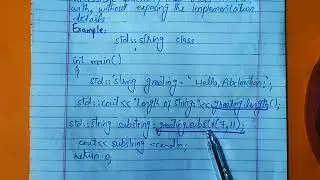 with, without exposing the implementation
details.
Example:
std::string class
int main()
{
std::string greeting = "Hello, Abstraction";
std::cout<< "Length of string:"<< greeting.length();
std::string substring = greeting.substr(7,11);
cout<< substring <<endl;
return 0;